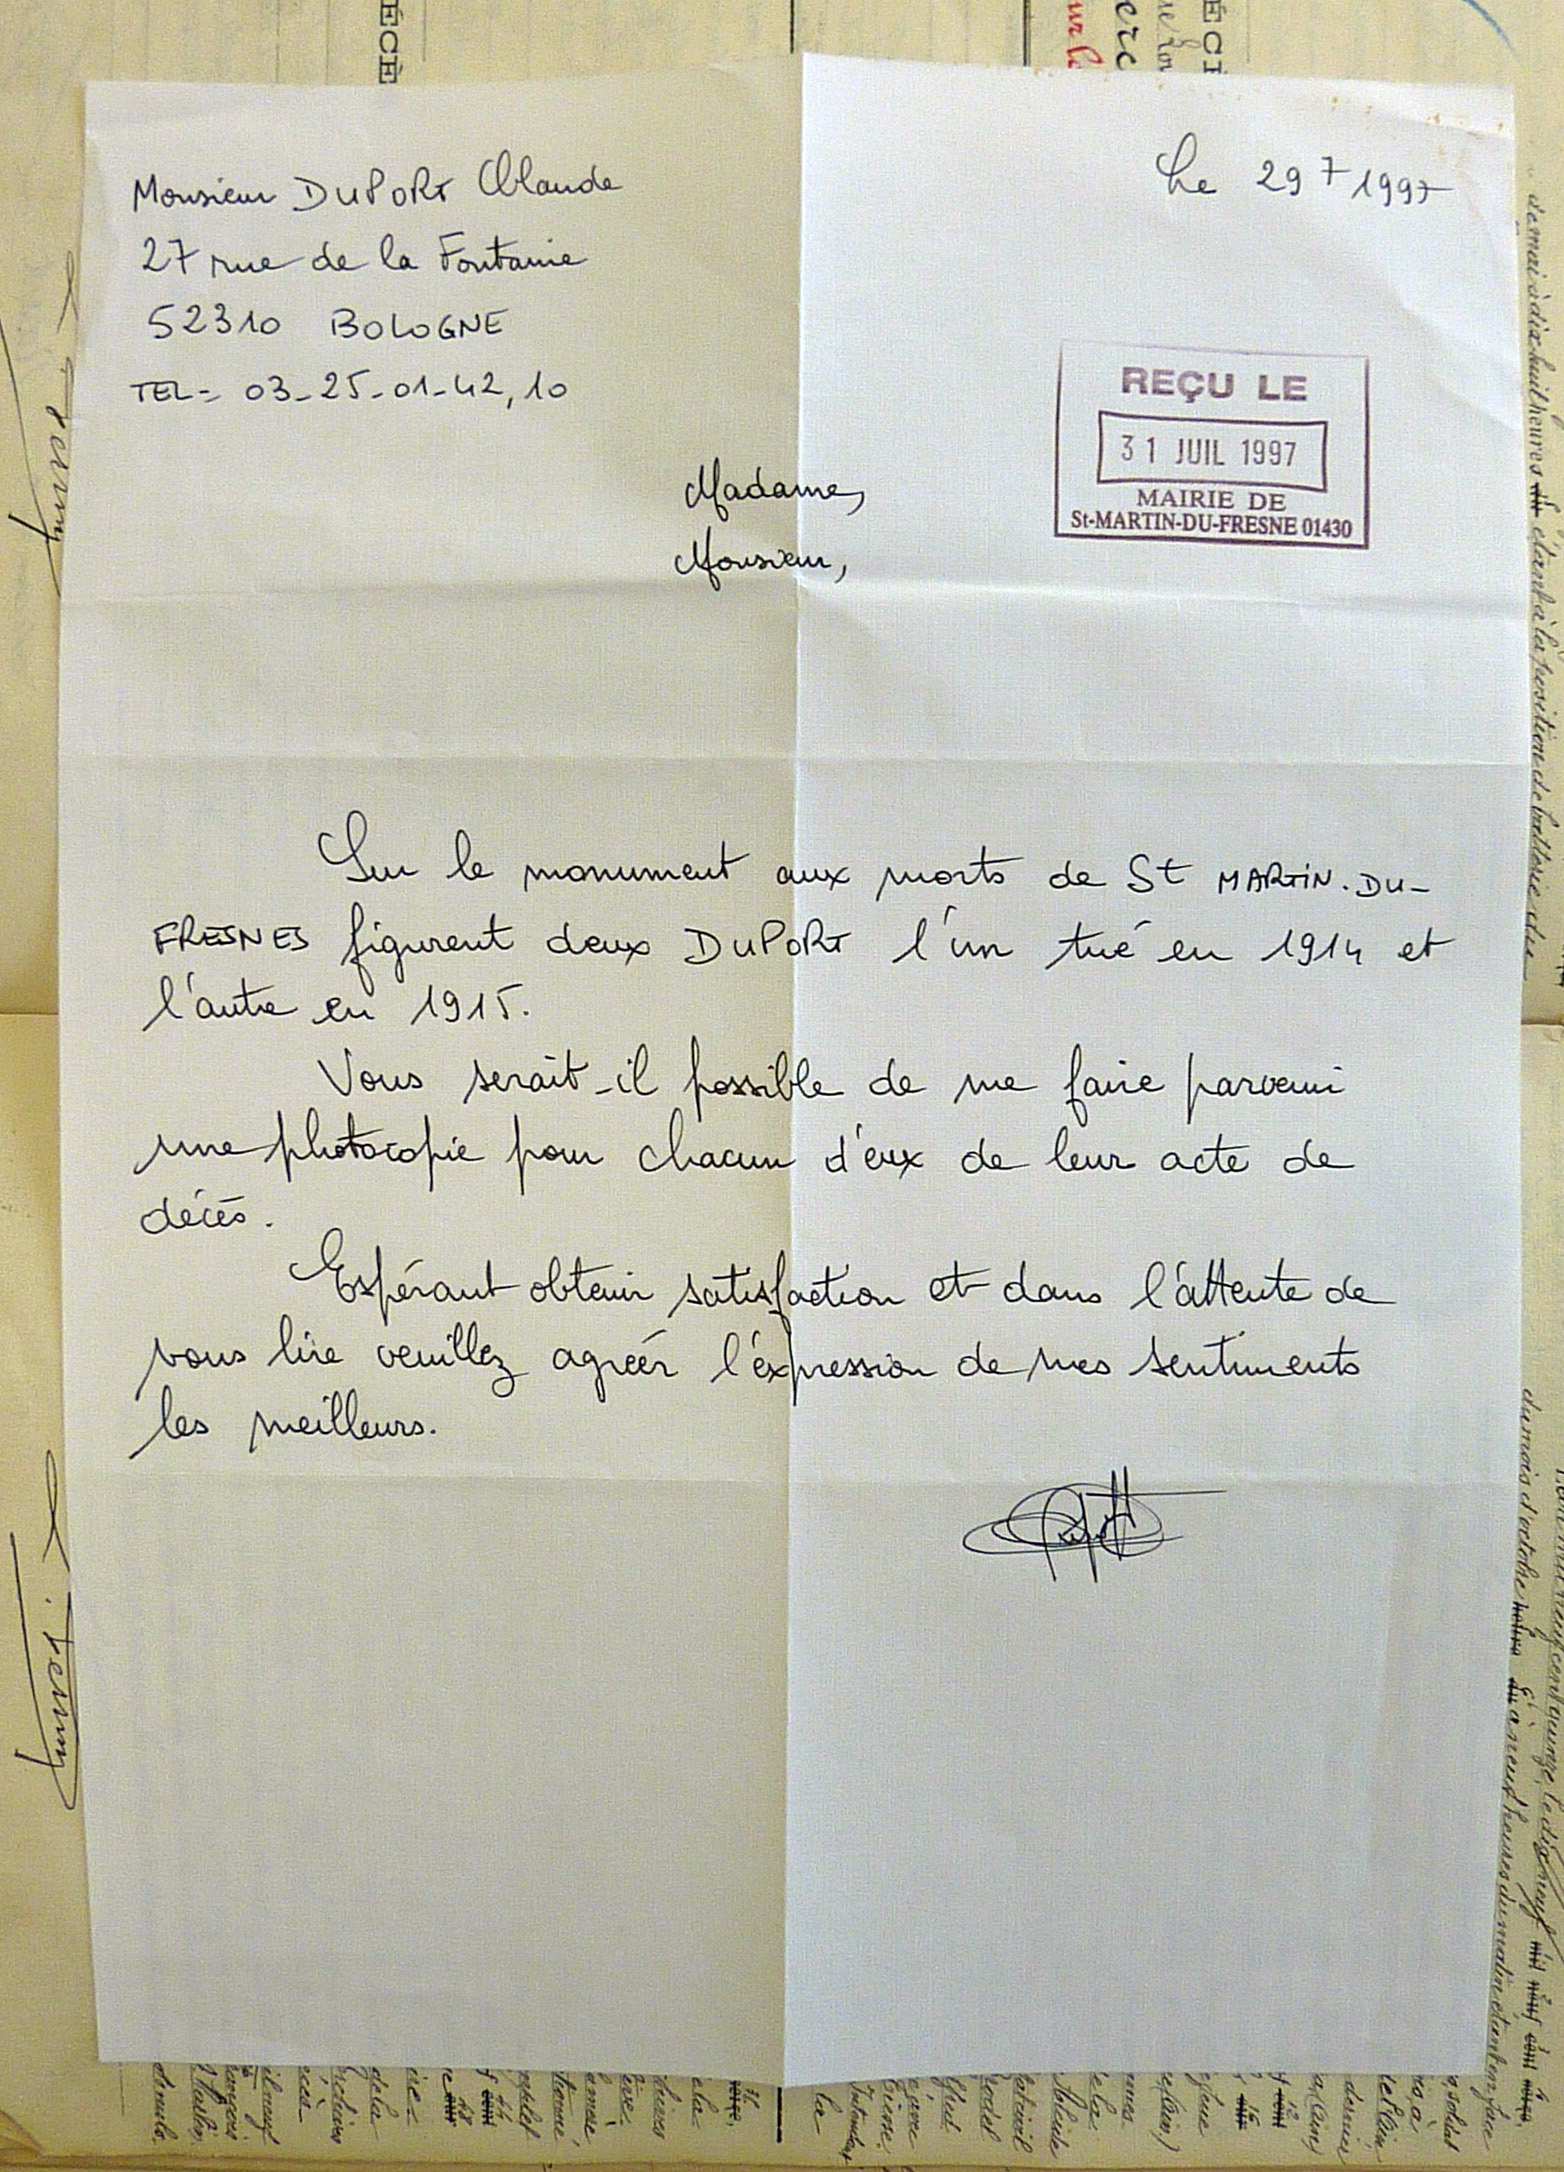 Monsieur DUPORT Claude
27 rue de la Fontaine
52310 BOLOGNE
TEL= 03_25_01_42,10
Le 29 7 1997
REÇU LE
31 JUIL 1997
MAIRIE DE
St-MARTIN-DU-FRESNE 01430
Madame,
Monsieur,
Sur le monument aux morts de St MARTIN.DU-
FRESNES figurent deux DUPORT l'un tué en 1914 et
l'autre en 1915.
Vous serait-il possible de me faire parvenir
une photocopie pour chacun d'eux de leur acte de
décés.
Espérant obtenir satisfaction et dans l'attente de
vous lire veuillez agréér l'éxpression de mes sentiments
les meilleurs.
de mai à dix huit heures étant à la position de batterie du
du mois d'octobre à neuf heures du matin étant en face